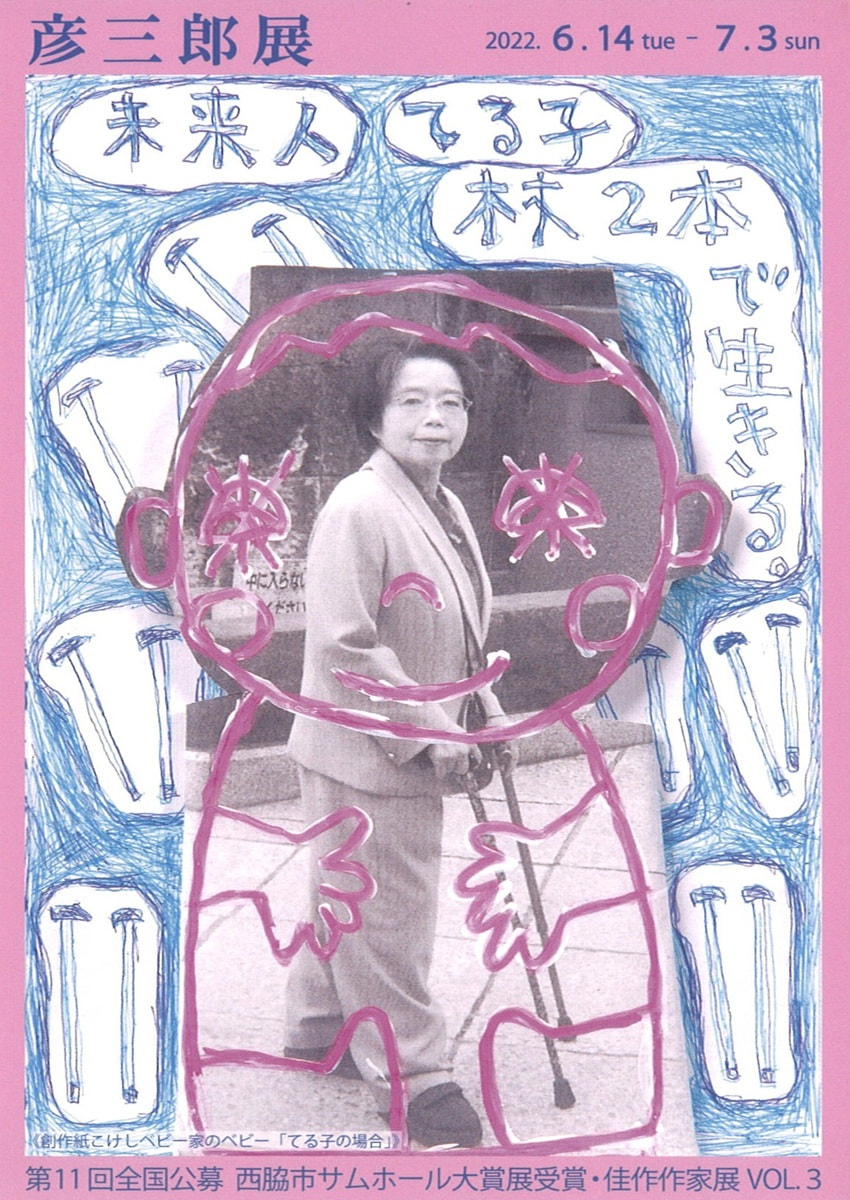 彦三郎展
2022. 6.14 tue - 7.3 sun
未来人 てる子
杖2本
で生きる。
中に入らない
ください
《創作紙こけしベビー家のベビー「てる子の場合」》
第11回全国公募 西脇市サムホール大賞展受賞・佳作作家展 VOL.3